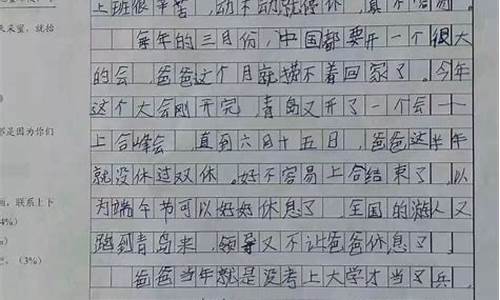 上班很辛苦，动不动就停休，真不容易。
每年的三月份，中国都要开一个很大
的会，爸爸这个月就捞不着回家了。今年
这个大会刚开完，青岛又开了一个会——
上合峰会，直到六月十五日，爸爸这半年
就没休过双休。好不容易上合结束了，以
为端午节可以好好休息了，全国的游人又
跑到青岛来，领导又不让爸爸休息了。
爸爸当年就是没考上大学才当了兵，
采蜜，就抬
都是因为你们
联系上下
4%）
（3%）